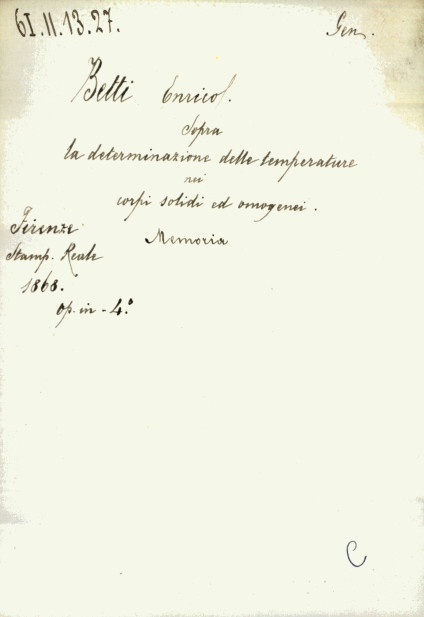 61.II.13.27.
Gen.
Betti Enrico.
Sopra
la determinazione delle temperature
nei
corpi solidi ed omogenei.
Memoria
Firenze
Stamp. Reale
1868.
op. in - 4.º
C